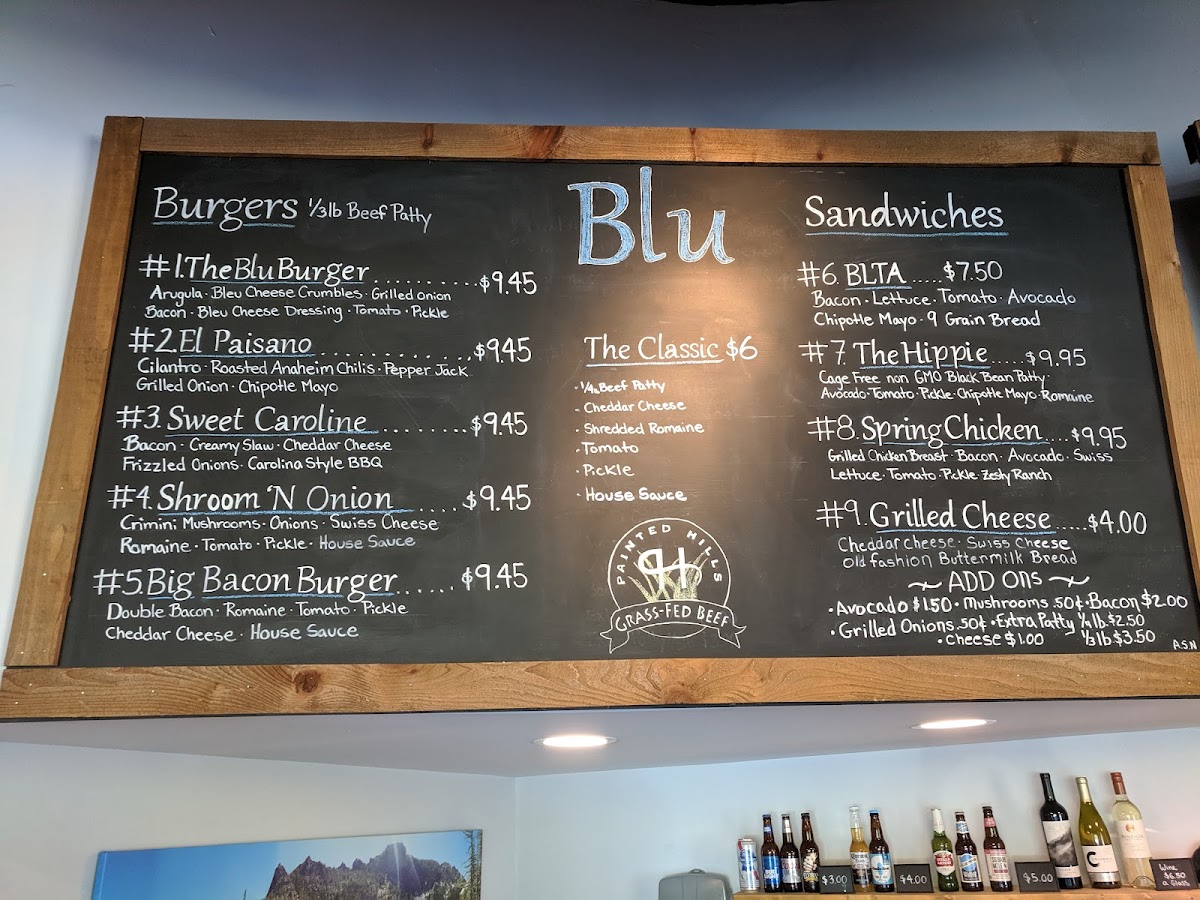 Blu
Burgers 1/3lb Beef Patty
#1. The Blu Burger ........ $9.45
Arugula · Bleu Cheese Crumbles · Grilled onion
Bacon · Bleu Cheese Dressing · Tomato · Pickle
#2. El Paisano ............ $9.45
Cilantro · Roasted Anaheim Chilis · Pepper Jack
Grilled Onion · Chipotle Mayo
#3. Sweet Caroline ........ $9.45
Bacon · Creamy Slaw · Cheddar Cheese
Frizzled Onions · Carolina Style BBQ
#4. Shroom 'N Onion ...... $9.45
Crimini Mushrooms · Onions · Swiss Cheese
Romaine · Tomato · Pickle · House Sauce
#5. Big Bacon Burger ...... $9.45
Double Bacon · Romaine · Tomato · Pickle
Cheddar Cheese · House Sauce
The Classic $6
· 1/4 lb Beef Patty
· Cheddar Cheese
· Shredded Romaine
· Tomato
· Pickle
· House Sauce
PAINTED HILLS
PH
GRASS-FED BEEF
Sandwiches
#6. BLTA ..... $7.50
Bacon · Lettuce · Tomato · Avocado
Chipotle Mayo · 9 Grain Bread
#7. The Hippie ..... $9.95
Cage Free non GMO Black Bean Patty
Avocado · Tomato · Pickle · Chipotle Mayo · Romaine
#8. Spring Chicken .... $9.95
Grilled Chicken Breast · Bacon · Avocado · Swiss
Lettuce · Tomato · Pickle · Zesty Ranch
#9. Grilled Cheese .... $4.00
Cheddar Cheese · Swiss Cheese
Old Fashion Buttermilk Bread
~ ADD ONs ~
· Avocado $1.50 · Mushrooms .50¢ · Bacon $2.00
· Grilled Onions .50¢ · Extra Patty 1/4 lb. $2.50
· Cheese $1.00 1/3 lb $3.50
A.S.N
$3.00
$4.00
$5.00
Wine
$6.50
a Glass